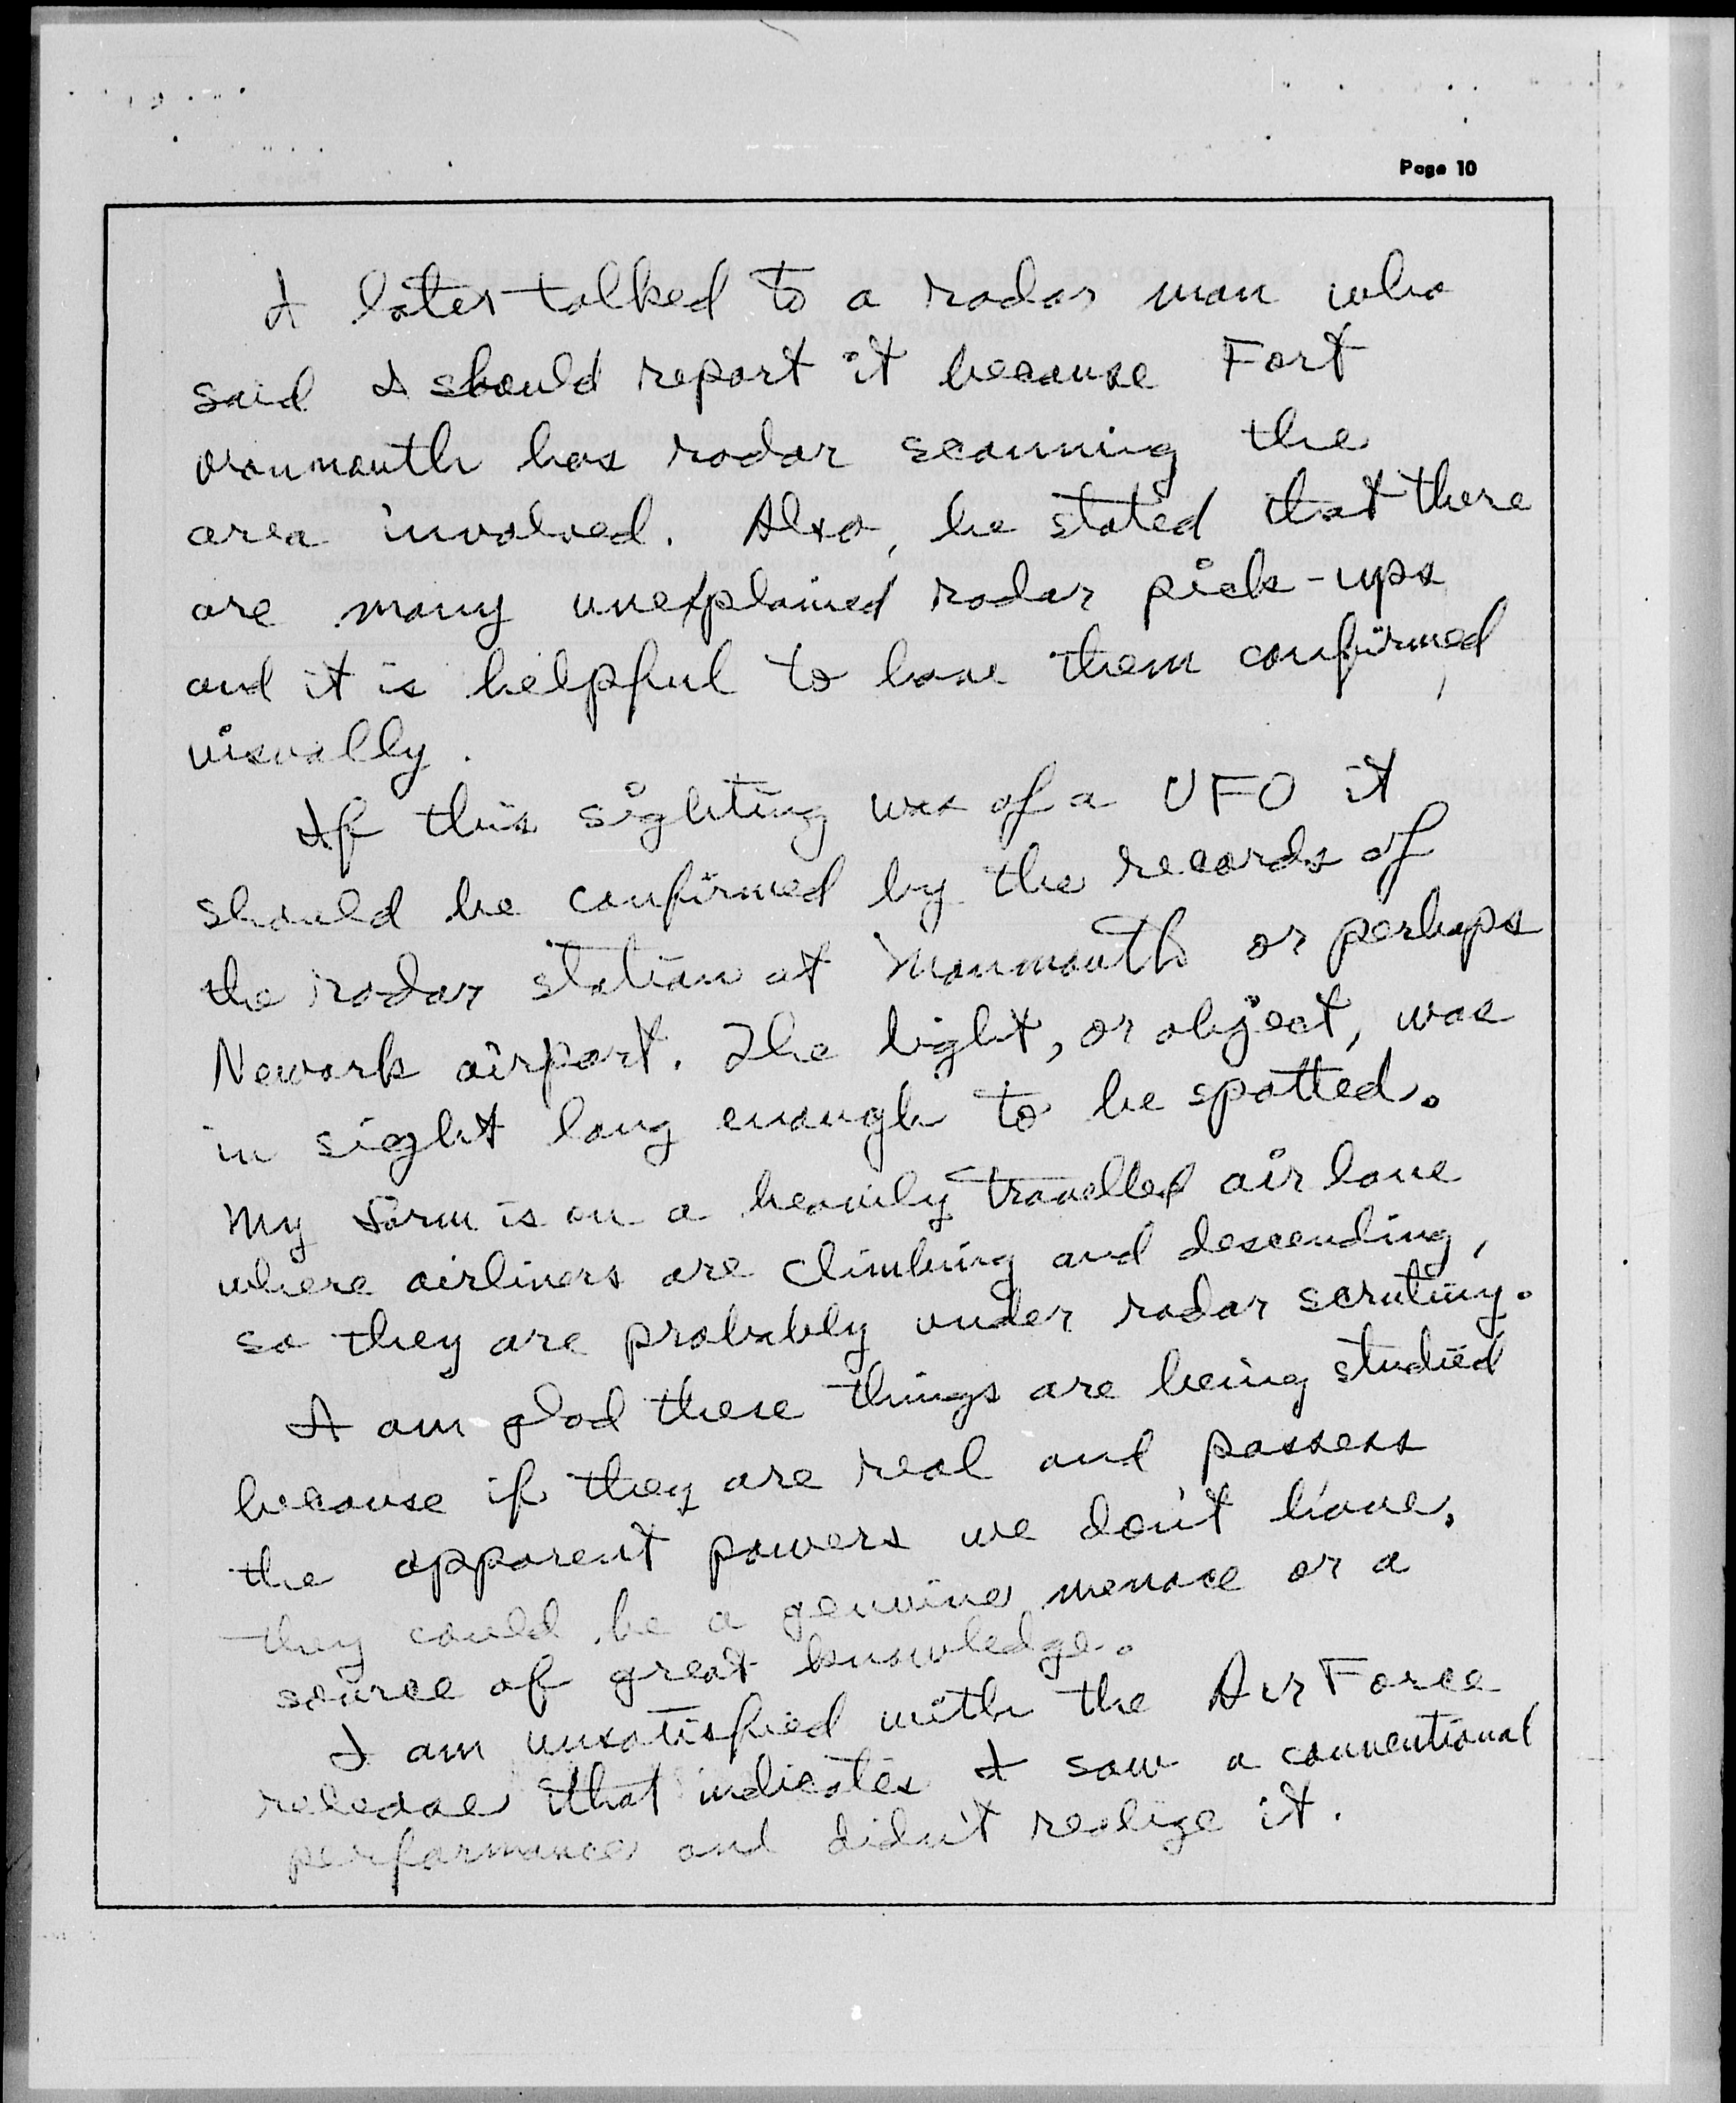 Page 10
I later talked to a radar man who
said I should report it because Fort
Monmouth has radar scanning the
area involved. Also, he stated that there
are many unexplained radar pick-ups
and it is helpful to have them confirmed,
visually.
If this sighting was of a UFO it
should be confirmed by the records of
the radar station at Monmouth or perhaps
Newark airport. The light, or object, was
in sight long enough to be spotted.
My farm is on a heavily travelled air lane
where airliners are climbing and descending,
so they are probably under radar scrutiny.
I am glad these things are being studied
because if they are real and possess
the apparent powers we don't have,
they could be a genuine menace or a
source of great knowledge.
I am unsatisfied with the Air Force
release that indicates I saw a conventional
performance and didn't realize it.